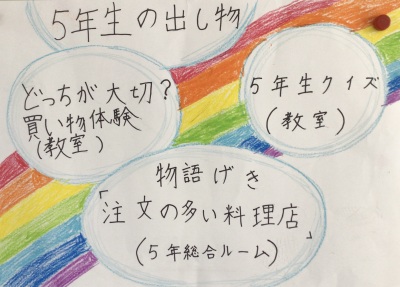 5年生の出し物
どっちが大切？
買い物体験
(教室)
5年生クイズ
(教室)
物語げき
「注文の多い料理店」
(5年総合ルーム)